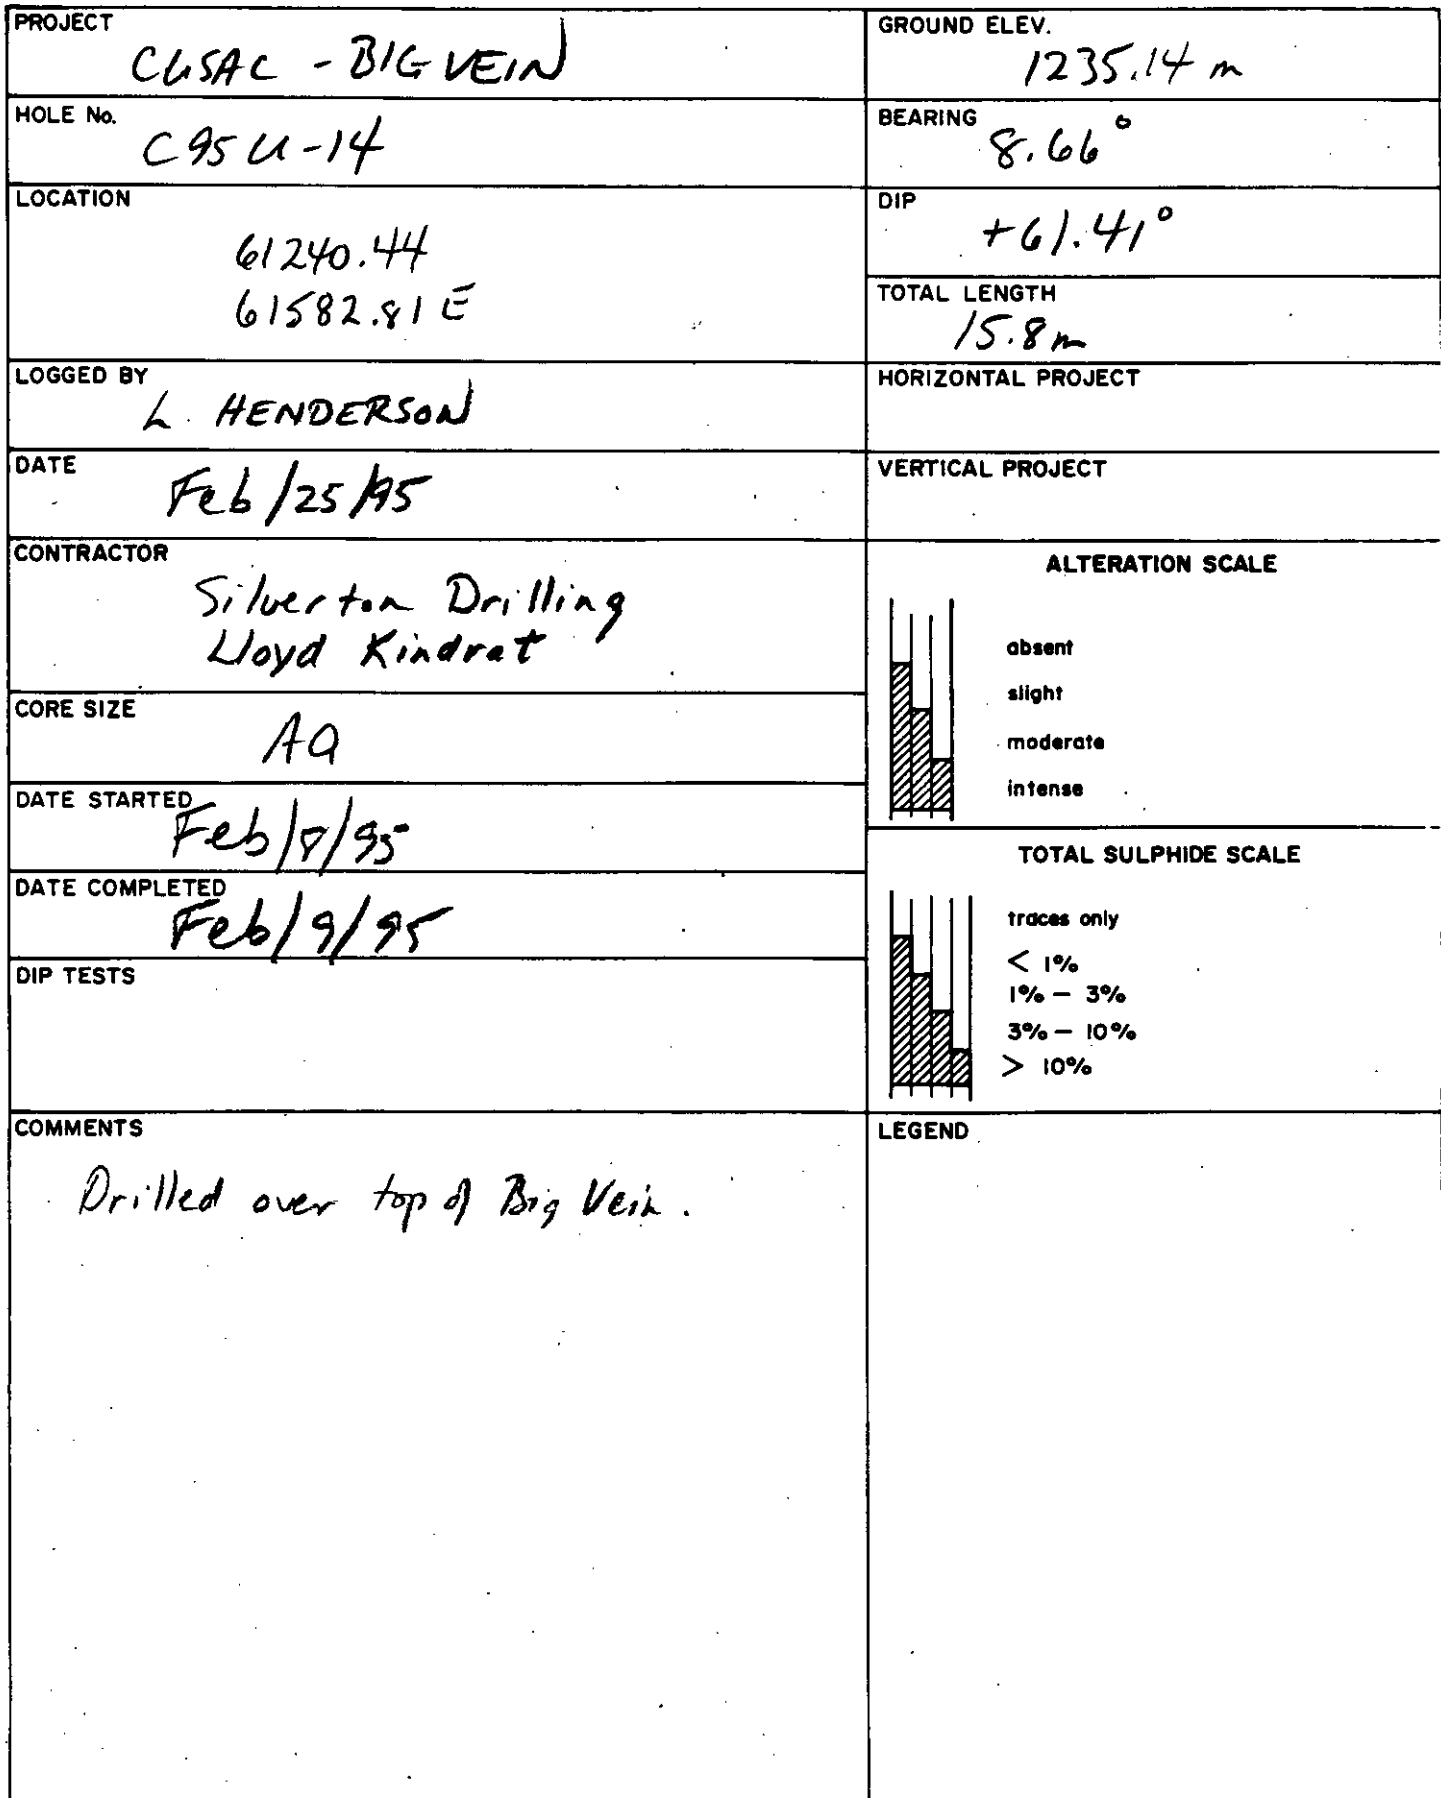 PROJECT
CUSAC - BIG VEIN
HOLE No.
C95U-14
LOCATION
61240.44
61582.81 E
LOGGED BY
L. HENDERSON
DATE
Feb/25/95
CONTRACTOR
Silverton Drilling
Lloyd Kindrat
CORE SIZE
AQ
DATE STARTED
Feb/8/95
DATE COMPLETED
Feb/9/95
DIP TESTS
COMMENTS
Drilled over top of Big Vein.
GROUND ELEV.
1235.14 m
BEARING
8.66°
DIP
+61.41°
TOTAL LENGTH
15.8m
HORIZONTAL PROJECT
VERTICAL PROJECT
ALTERATION SCALE
absent
slight
moderate
intense
TOTAL SULPHIDE SCALE
traces only
< 1%
1% - 3%
3% - 10%
> 10%
LEGEND